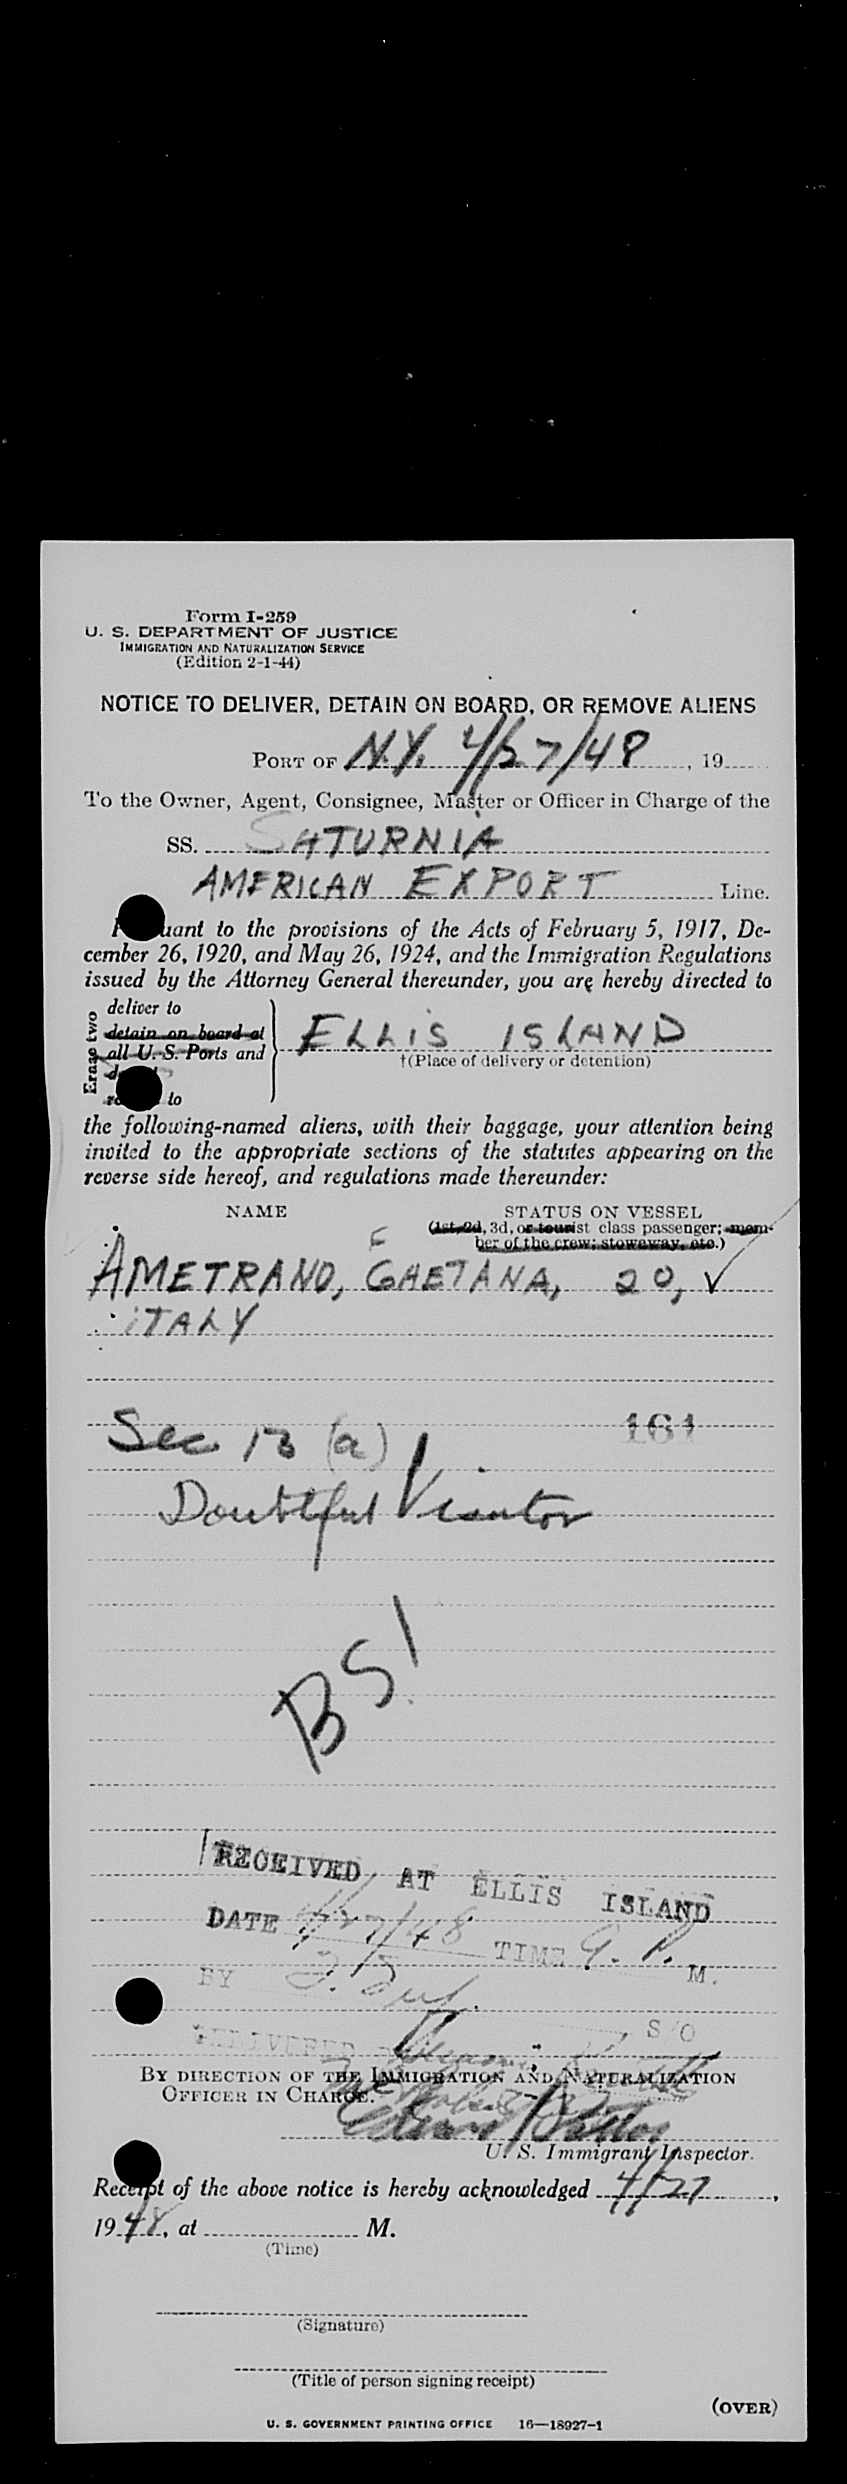 Form I-259
U. S. DEPARTMENT OF JUSTICE
IMMIGRATION AND NATURALIZATION SERVICE
(Edition 2-1-44)
NOTICE TO DELIVER, DETAIN ON BOARD, OR REMOVE ALIENS
PORT OF N.Y. 4/27/48, 19
To the Owner, Agent, Consignee, Master or Officer in Charge of the
SS. SATURNIA
AMERICAN EXPORT Line.
uant to the provisions of the Acts of February 5, 1917, De-
cember 26, 1920, and May 26, 1924, and the Immigration Regulations
issued by the Attorney General thereunder, you are hereby directed to
Erase two
deliver to
detain on board at
all U. S. Ports and
to
ELLIS ISLAND
†(Place of delivery or detention)
the following-named aliens, with their baggage, your attention being
invited to the appropriate sections of the statutes appearing on the
reverse side hereof, and regulations made thereunder:
NAME STATUS ON VESSEL
(1st, 2d, 3d, or tourist class passenger; mem-
ber of the crew; stowaway, etc.)
F
AMETRANO, GAETANA, 20, ✓
ITALY
161
Sec 13 (a)
Doubtful Visitor
BSI
RECEIVED AT ELLIS ISLAND
DATE 4/27/48 TIME 9. P. M.
BY
S O
DELIVERED
BY DIRECTION OF THE IMMIGRATION AND NATURALIZATION
OFFICER IN CHARGE.
U. S. Immigrant Inspector.
Receipt of the above notice is hereby acknowledged 4/27,
1948, at M.
(Time)
(Signature)
(Title of person signing receipt)
(OVER)
U. S. GOVERNMENT PRINTING OFFICE 16—18927-1